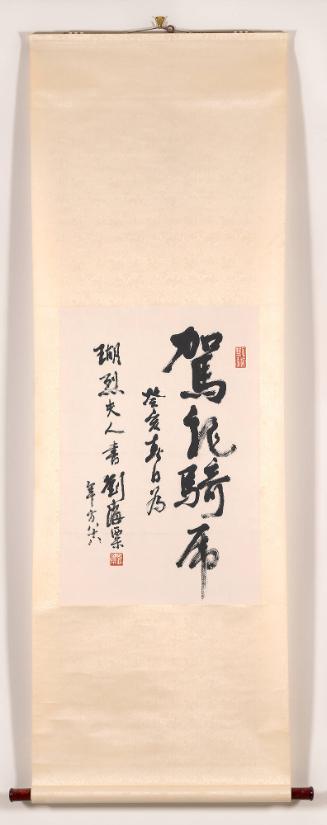 駕龍騎虎
癸亥春日為
瑚烈夫人書 劉海粟
年方八八